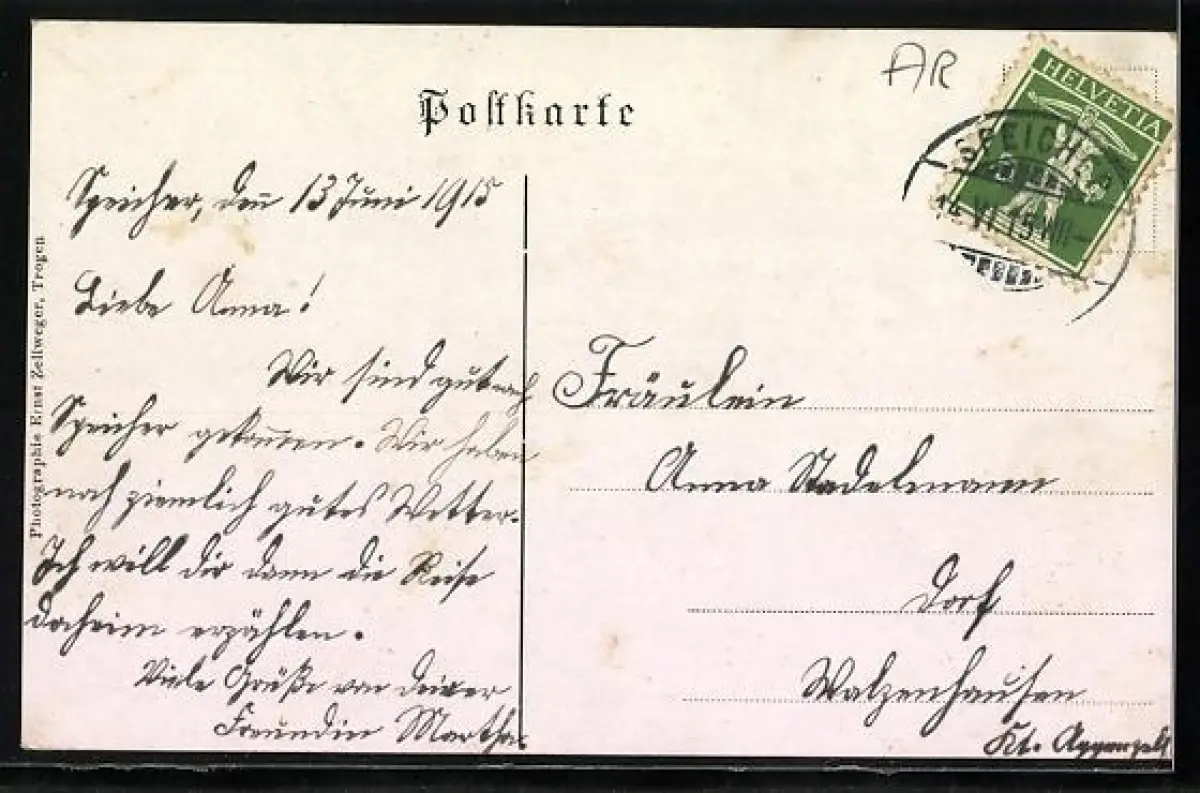 AR
HELVETIA
SPEICHER
14.VI.15.VIII–
Postkarte
Speicher, den 13 Juni 1915
Liebe Anna!
Wir sind gut nach
Speicher gekommen. Wir haben
noch ziemlich gutes Wetter.
Ich will dir dann die Reise
daheim erzählen.
Viele Grüße von deiner
Freundin Martha
Fräulein
Anna Stadelmann
Dorf
Walzenhausen
Kt. Appenzell
Photographie Ernst Zellweger, Trogen